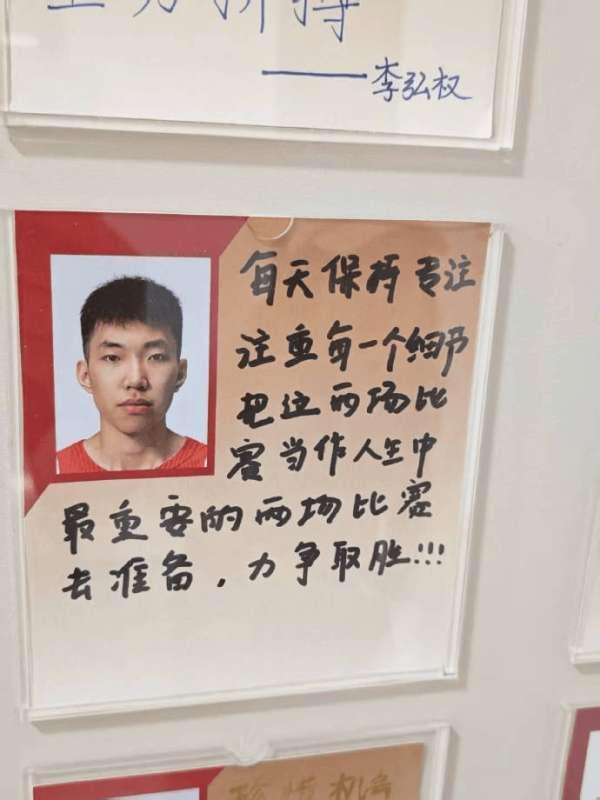 全力拼搏
——李弘权
每天保持专注
注重每一个细节
把这两场比
赛当作人生中
最重要的两场比赛
去准备，力争取胜!!!
珍惜机会